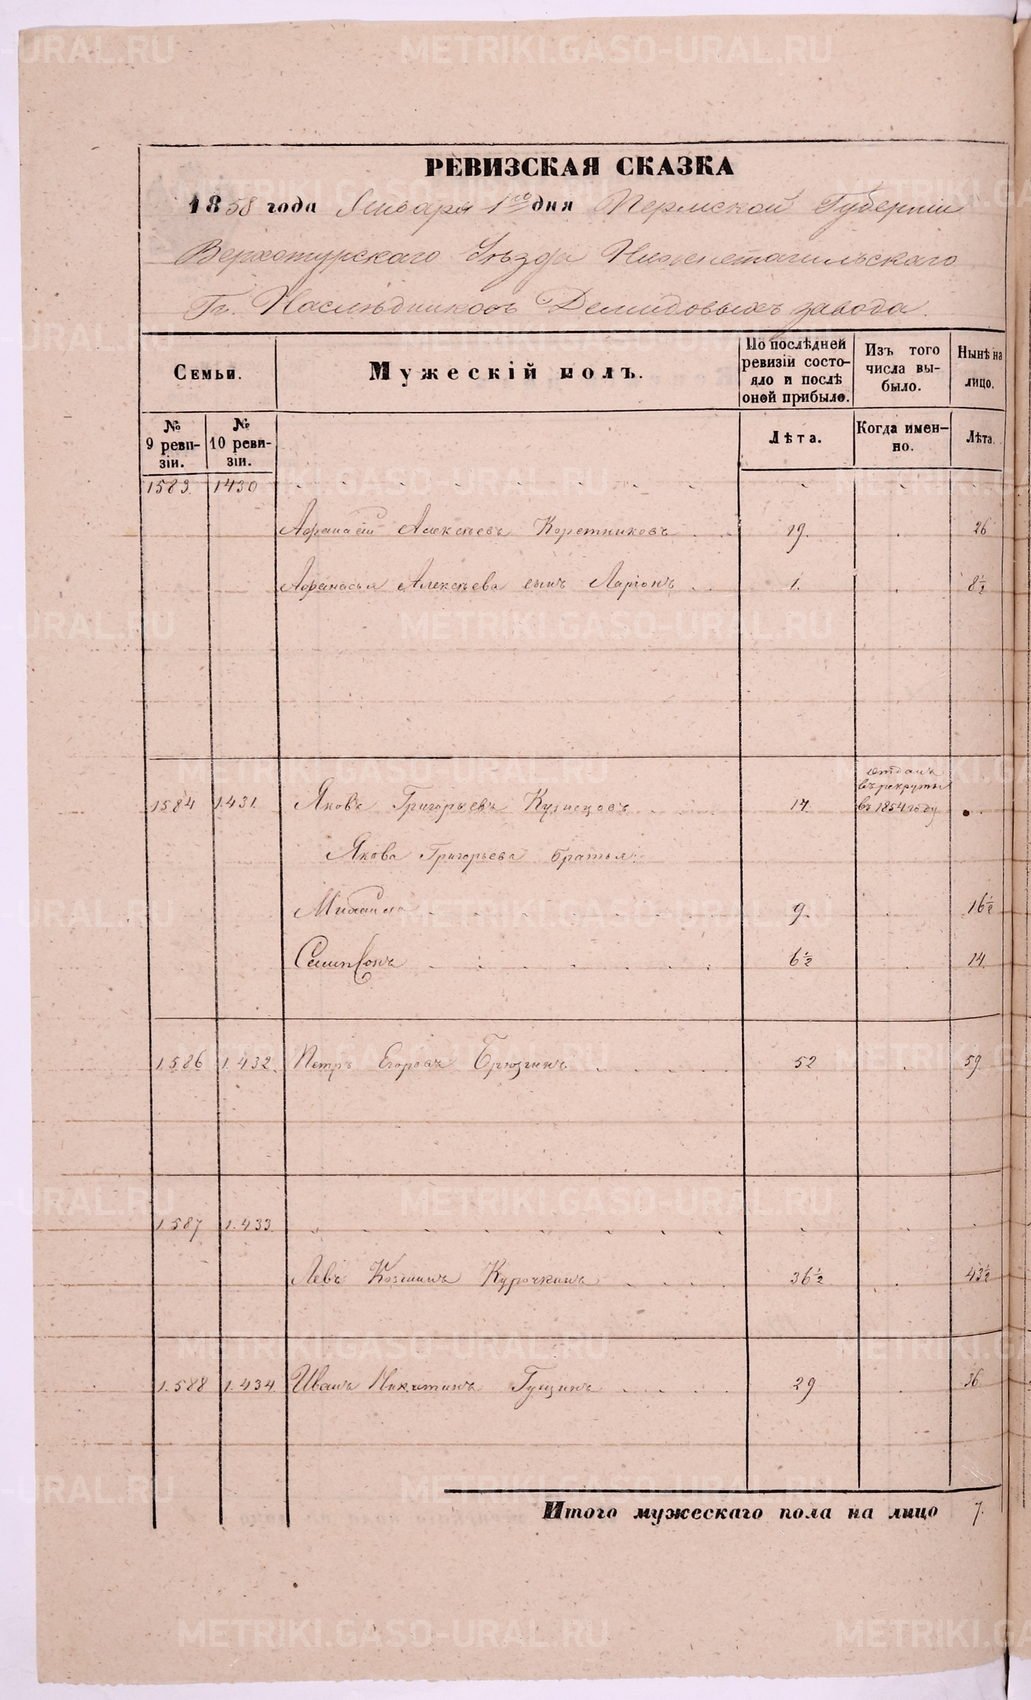 РЕВИЗСКАЯ СКАЗКА
1858 года Января 1го дня Пермской Губерніи
Верхотурскаго Уѣзда Нижнетагильскаго
Гг. Наслѣдниковъ Демидовыхъ завода.
Семьи. Мужескій полъ. По послѣдней ревизіи состояло и послѣ оной прибыло. Изъ того числа выбыло. Нынѣ на лицо.
№ 9 ревизіи. № 10 ревизіи. Лѣта. Когда именно. Лѣта.
1583 1430
Афанасій Алексѣевъ Коретниковъ 19. 26
Афанасья Алексѣева сынъ Ларіонъ 1. 8½
1584 1431 Яковъ Григорьевъ Кузнецовъ 17. отданъ въ рекруты въ 1854 году
Якова Григорьева братья:
Михайло 9. 16½
Сампсонъ 6½ 14.
1586 1.432. Петръ Егоровъ Брюзгинъ 52 59
1587 1.433
Левъ Козминъ Курочкинъ 36½ 43½
1.588 1.434 Иванъ Никитинъ Гущинъ 29 36
Итого мужескаго пола на лицо 7.
METRIKI.GASO-URAL.RU